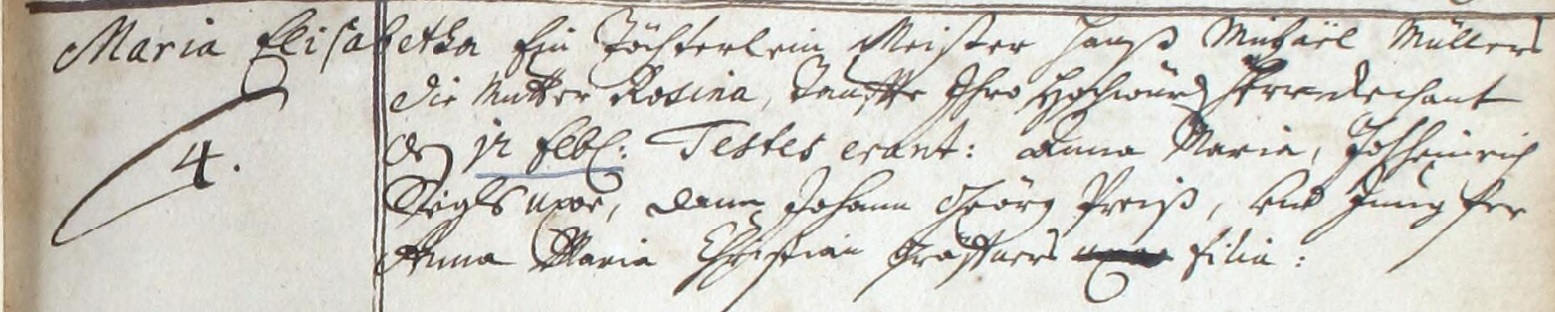 Maria Elisabetha Ein Töchterlein Meister Hanß Michäel Müllers
die Mutter Rosina, Tauffte Ihro Hochwürd Herr dechant
den 12 Febr: Testes erant: Anna Maria, Joh Heinrich
4.
uxor, dann Johann Geörg Preiß, und Jungfer
Anna Maria Christian filia: